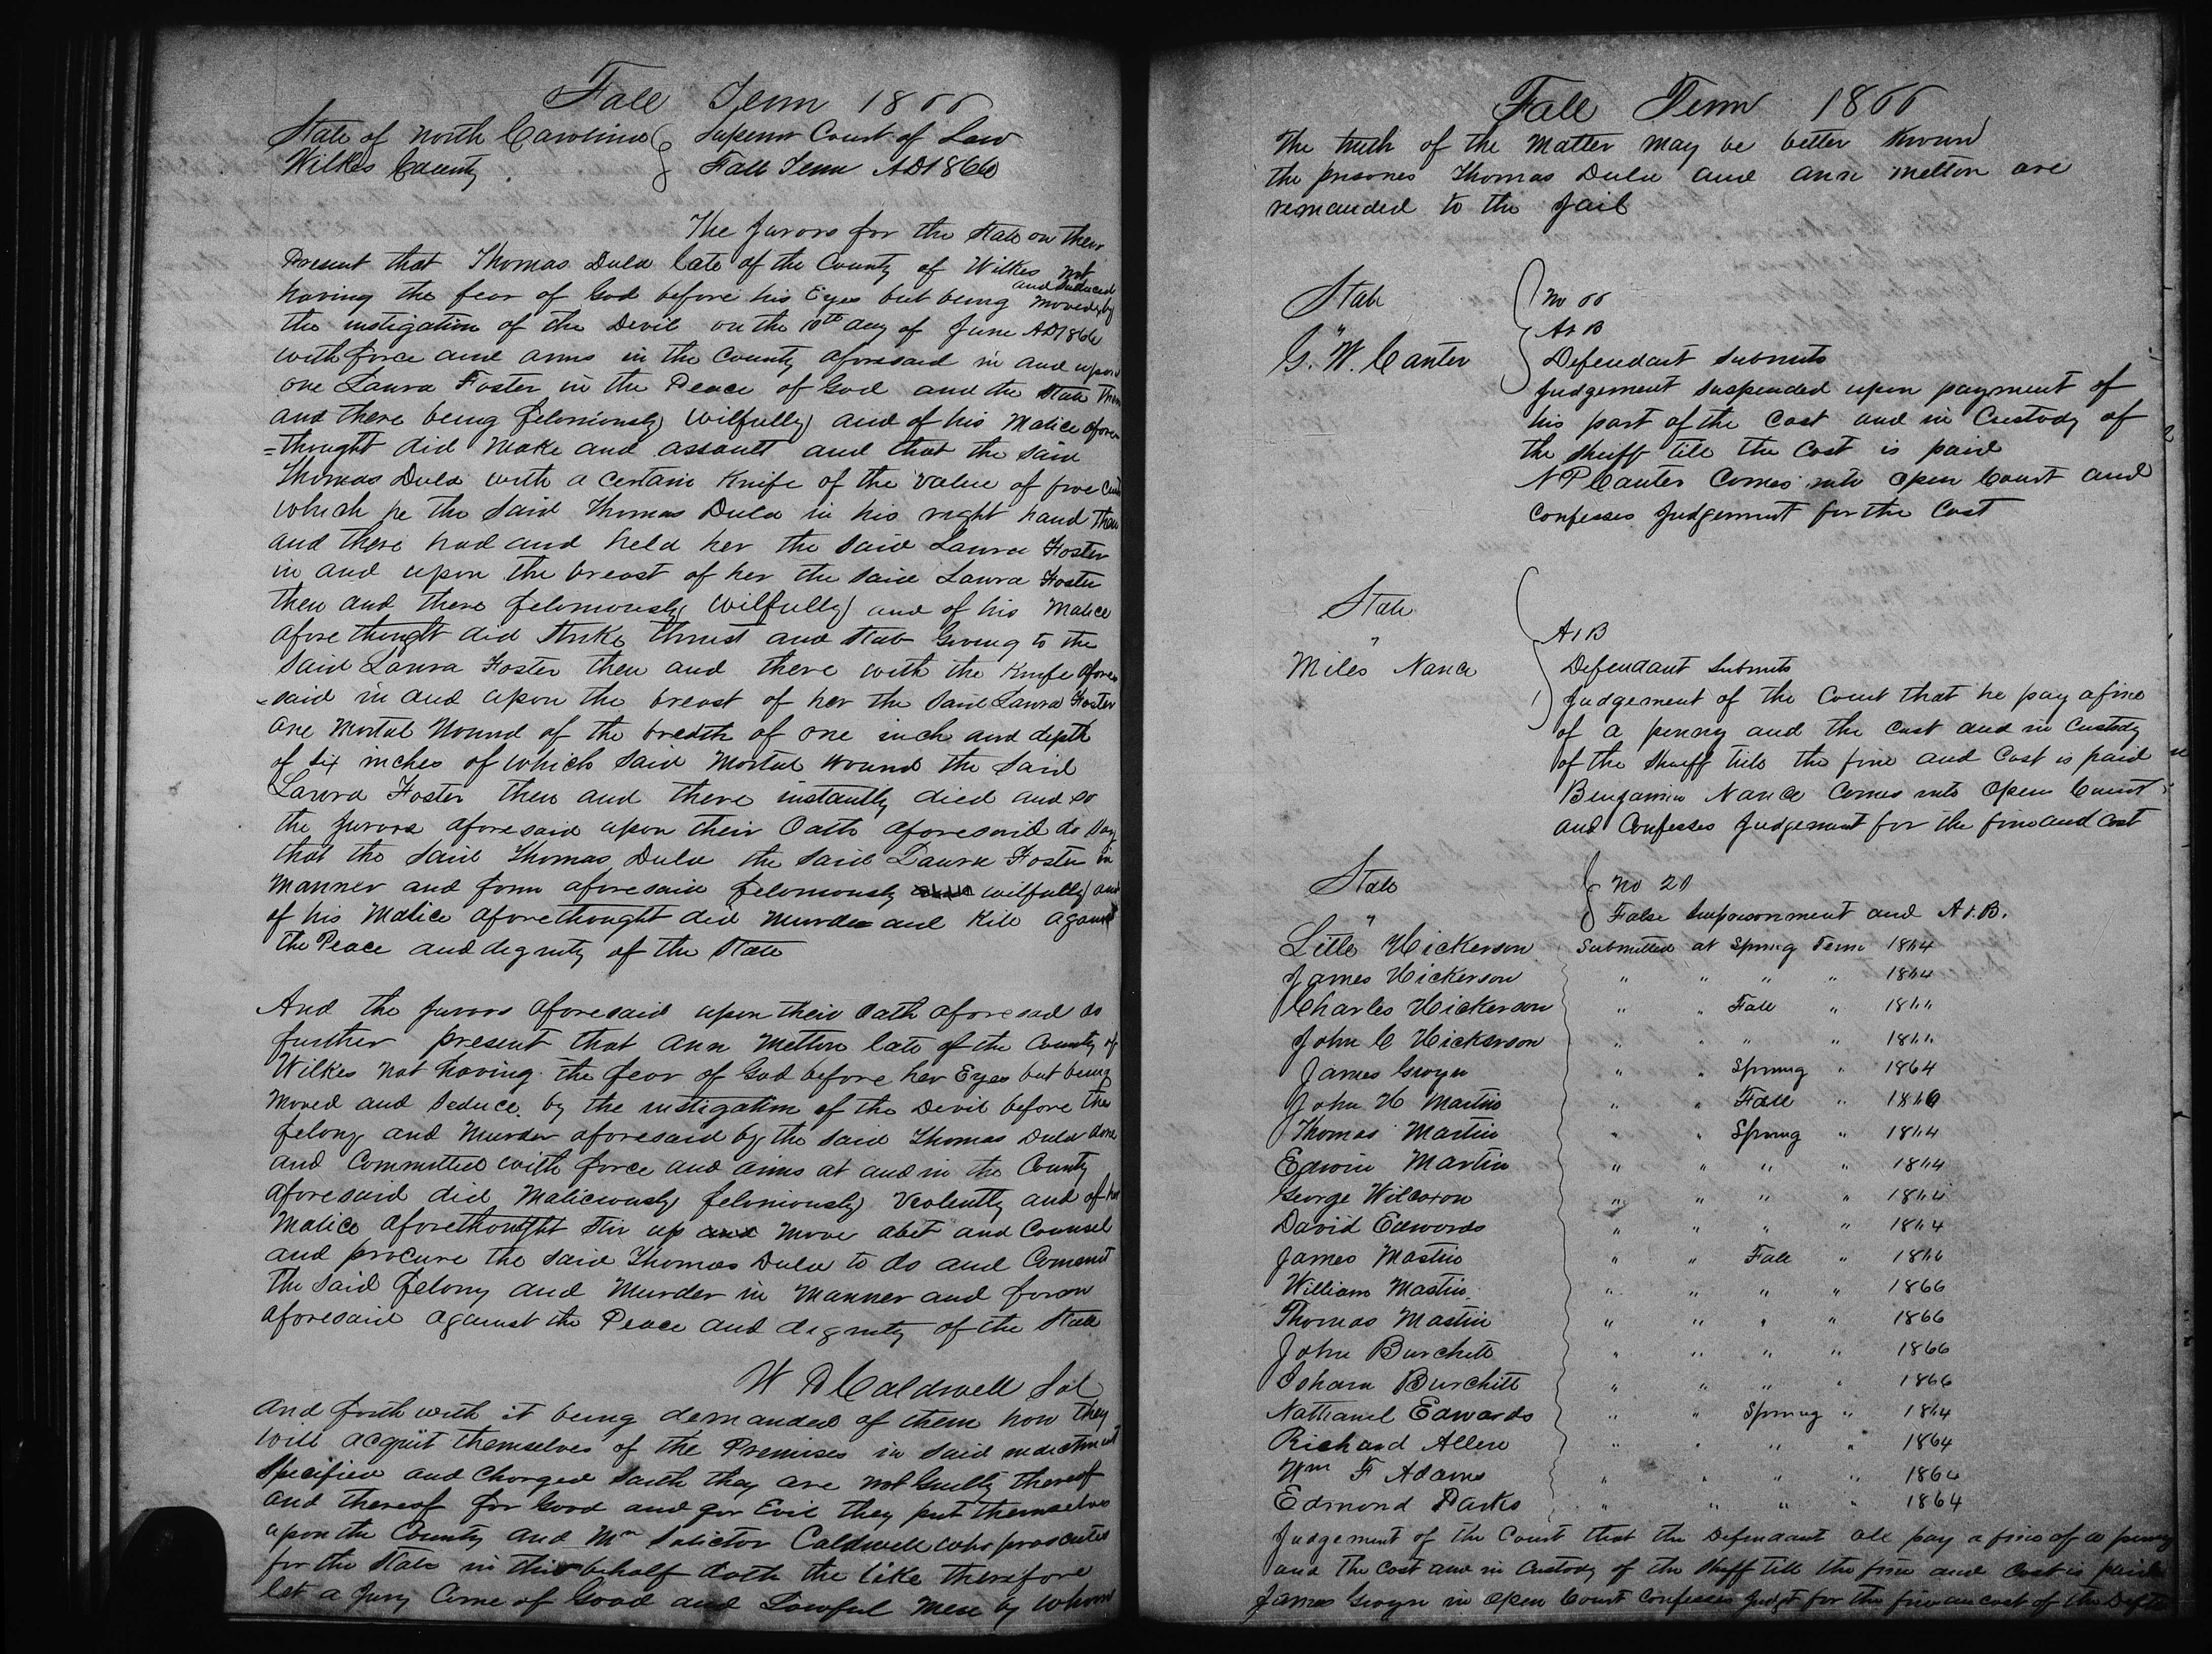 Fall Term 1866
State of North Carolina } Superior Court of Law
Wilkes County } Fall Term AD 1866
The Jurors for the State on their
Present that Thomas Dula late of the County of Wilkes not
having the fear of God before his Eyes but being moved and seduced by
the instigation of the Devil on the 18th day of June AD 1866
with force and arms in the County aforesaid in and upon
one Laura Foster in the Peace of God and the State then
and there being feloniously wilfully and of his Malice afore
=thought did make and assault and that the said
Thomas Dula with a certain Knife of the value of five cents
which he the said Thomas Dula in his right hand then
and there had and held her the said Laura Foster
in and upon the breast of her the said Laura Foster
then and there feloniously wilfully and of his Malice
afore thought did strike thrust and stab Giving to the
said Laura Foster then and there with the Knife afore
=said in and upon the breast of her the said Laura Foster
one Mortal Wound of the breadth of one inch and depth
of six inches of which said Mortal Wound the said
Laura Foster then and there instantly died and so
the Jurors aforesaid upon their Oath aforesaid do say
that the said Thomas Dula the said Laura Foster in
manner and form aforesaid feloniously wilfully and
of his Malice aforethought did Murder and Kill against
the Peace and dignity of the State
And the Jurors aforesaid upon their Oath aforesaid do
further present that Ann Melton late of the County of
Wilkes Not having the fear of God before her Eyes but being
moved and seduce by the instigation of the Devil before the
felony and Murder aforesaid by the said Thomas Dula done
and Committed with force and arms at and in the County
aforesaid did Maliciously feloniously Violently and of her
Malice aforethought stir up and move abet and Counsel
and procure the said Thomas Dula to do and Commit
the said felony and Murder in Manner and form
aforesaid against the Peace and dignity of the State
W P Caldwell Sol
and forth with it being demanded of them how they
will acquit themselves of the Premises in said indictment
Specified and Charged saith they are not Guilty thereof
and thereof for Good and for Evil they put themselves
upon the County and Mr Solictor Caldwell who prosecutes
for the State in this behalf doth the like therefore
let a Jury Come of Good and Lawful Men by whom
Fall Term 1866
The truth of the Matter may be better Known
the prisones Thomas Dula and Ann Melton are
remanded to the Jail
State } No 66
" } A & B
G. W. Canter } Defendant Submits
Judgement Suspended upon payment of
his part of the Cost and in Custody of
the Sheriff till the Cost is paid
N P Canter Comes into Open Court and
Confesses Judgement for the Cost
State
" } A & B
Miles Nance } Defendant Submits
Judgement of the Court that he pay a fine
of a penny and the Cost and in Custody
of the Sheriff till the fine and Cost is paid
Benjamin Nance Comes into Open Court
and Confesses Judgement for the fine and Cost
State } No 20
" } False Imprisonment and A & B.
Litle Hickerson Submitted at Spring Term 1864
James Hickerson " " " " 1864
Charles Hickerson " " Fall " 1866
John C Hickerson " " " " 1866
James Gwyn " " Spring " 1864
John H Martin " " Fall " 1866
Thomas Martin " " Spring " 1864
Edwin Martin " " " " 1864
George Wilcoxon " " " " 1864
David Edwards " " " " 1864
James Mastin " " Fall " 1866
William Mastin " " " " 1866
Thomas Mastin " " " " 1866
John Burchett " " " " 1866
Isham Burchett " " " " 1866
Nathaniel Edwards " " Spring " 1864
Richard Allen " " " " 1864
Wm F Adams " " " " 1864
Edmond Parks " " " " 1864
Judgement of the Court that the Defendant all pay a fine of a penny
and the Cost and in Custody of the Sheriff till the fine and Cost is paid
James Gwyn in Open Court Confesses Judgt for the fine and cost of the Defts